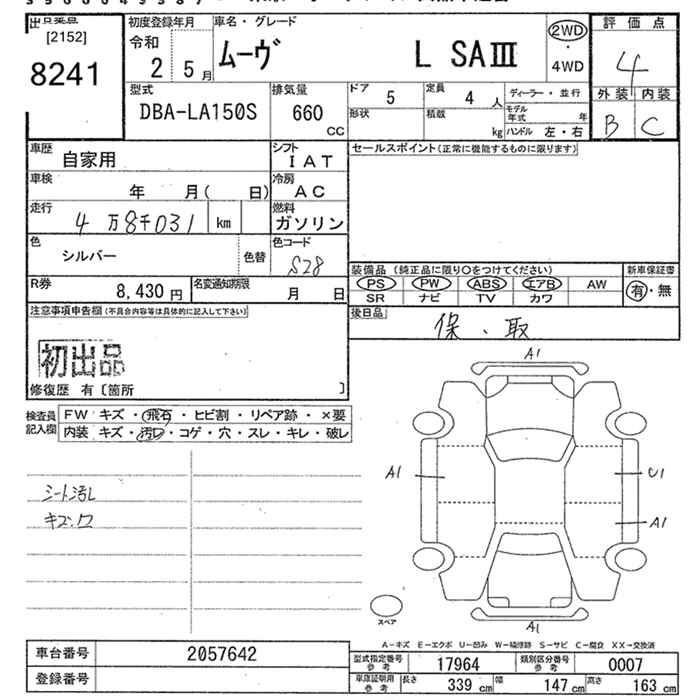 [2152]
8241
初度登録年月
令和
2 5月
車名・グレード
ムーヴ L SAⅢ
2WD
・
4WD
評価点
4
外装 内装
B C
型式
DBA-LA150S
排気量
660
CC
ドア
5
定員
4 人
形状
積載
kg
ディーラー・並行
モデル年式 年
ハンドル 左・右
車歴
自家用
シフト
IAT
車検
年 月( 日)
冷房
AC
走行
4万8千031 km
燃料
ガソリン
色
シルバー
色替
色コード
S28
R券
8,430 円
名変通知期限
月 日
セールスポイント(正常に機能するものに限ります)
装備品 (純正品に限り○をつけてください)
PS PW ABS エアB AW
SR ナビ TV カワ
新車保証書
有・無
後日品
保、取
注意事項申告欄(不具合内容等は具体的に記入して下さい)
初出品
修復歴 有〔箇所 〕
検査員記入欄
FW キズ・飛石・ヒビ割・リペア跡・×要
内装 キズ・汚れ・コゲ・穴・スレ・キレ・破レ
キズ、ワ
A1
A1
U1
A1
A1
スペア
A-キズ E-エクボ U-凹み W-補修跡 S-サビ C-腐食 XX-交換済
車台番号 2057642
登録番号
型式指定番号 参考 17964
類別区分番号 参考 0007
車庫証明用 参考 長さ 339 cm 幅 147 cm 高さ 163 cm